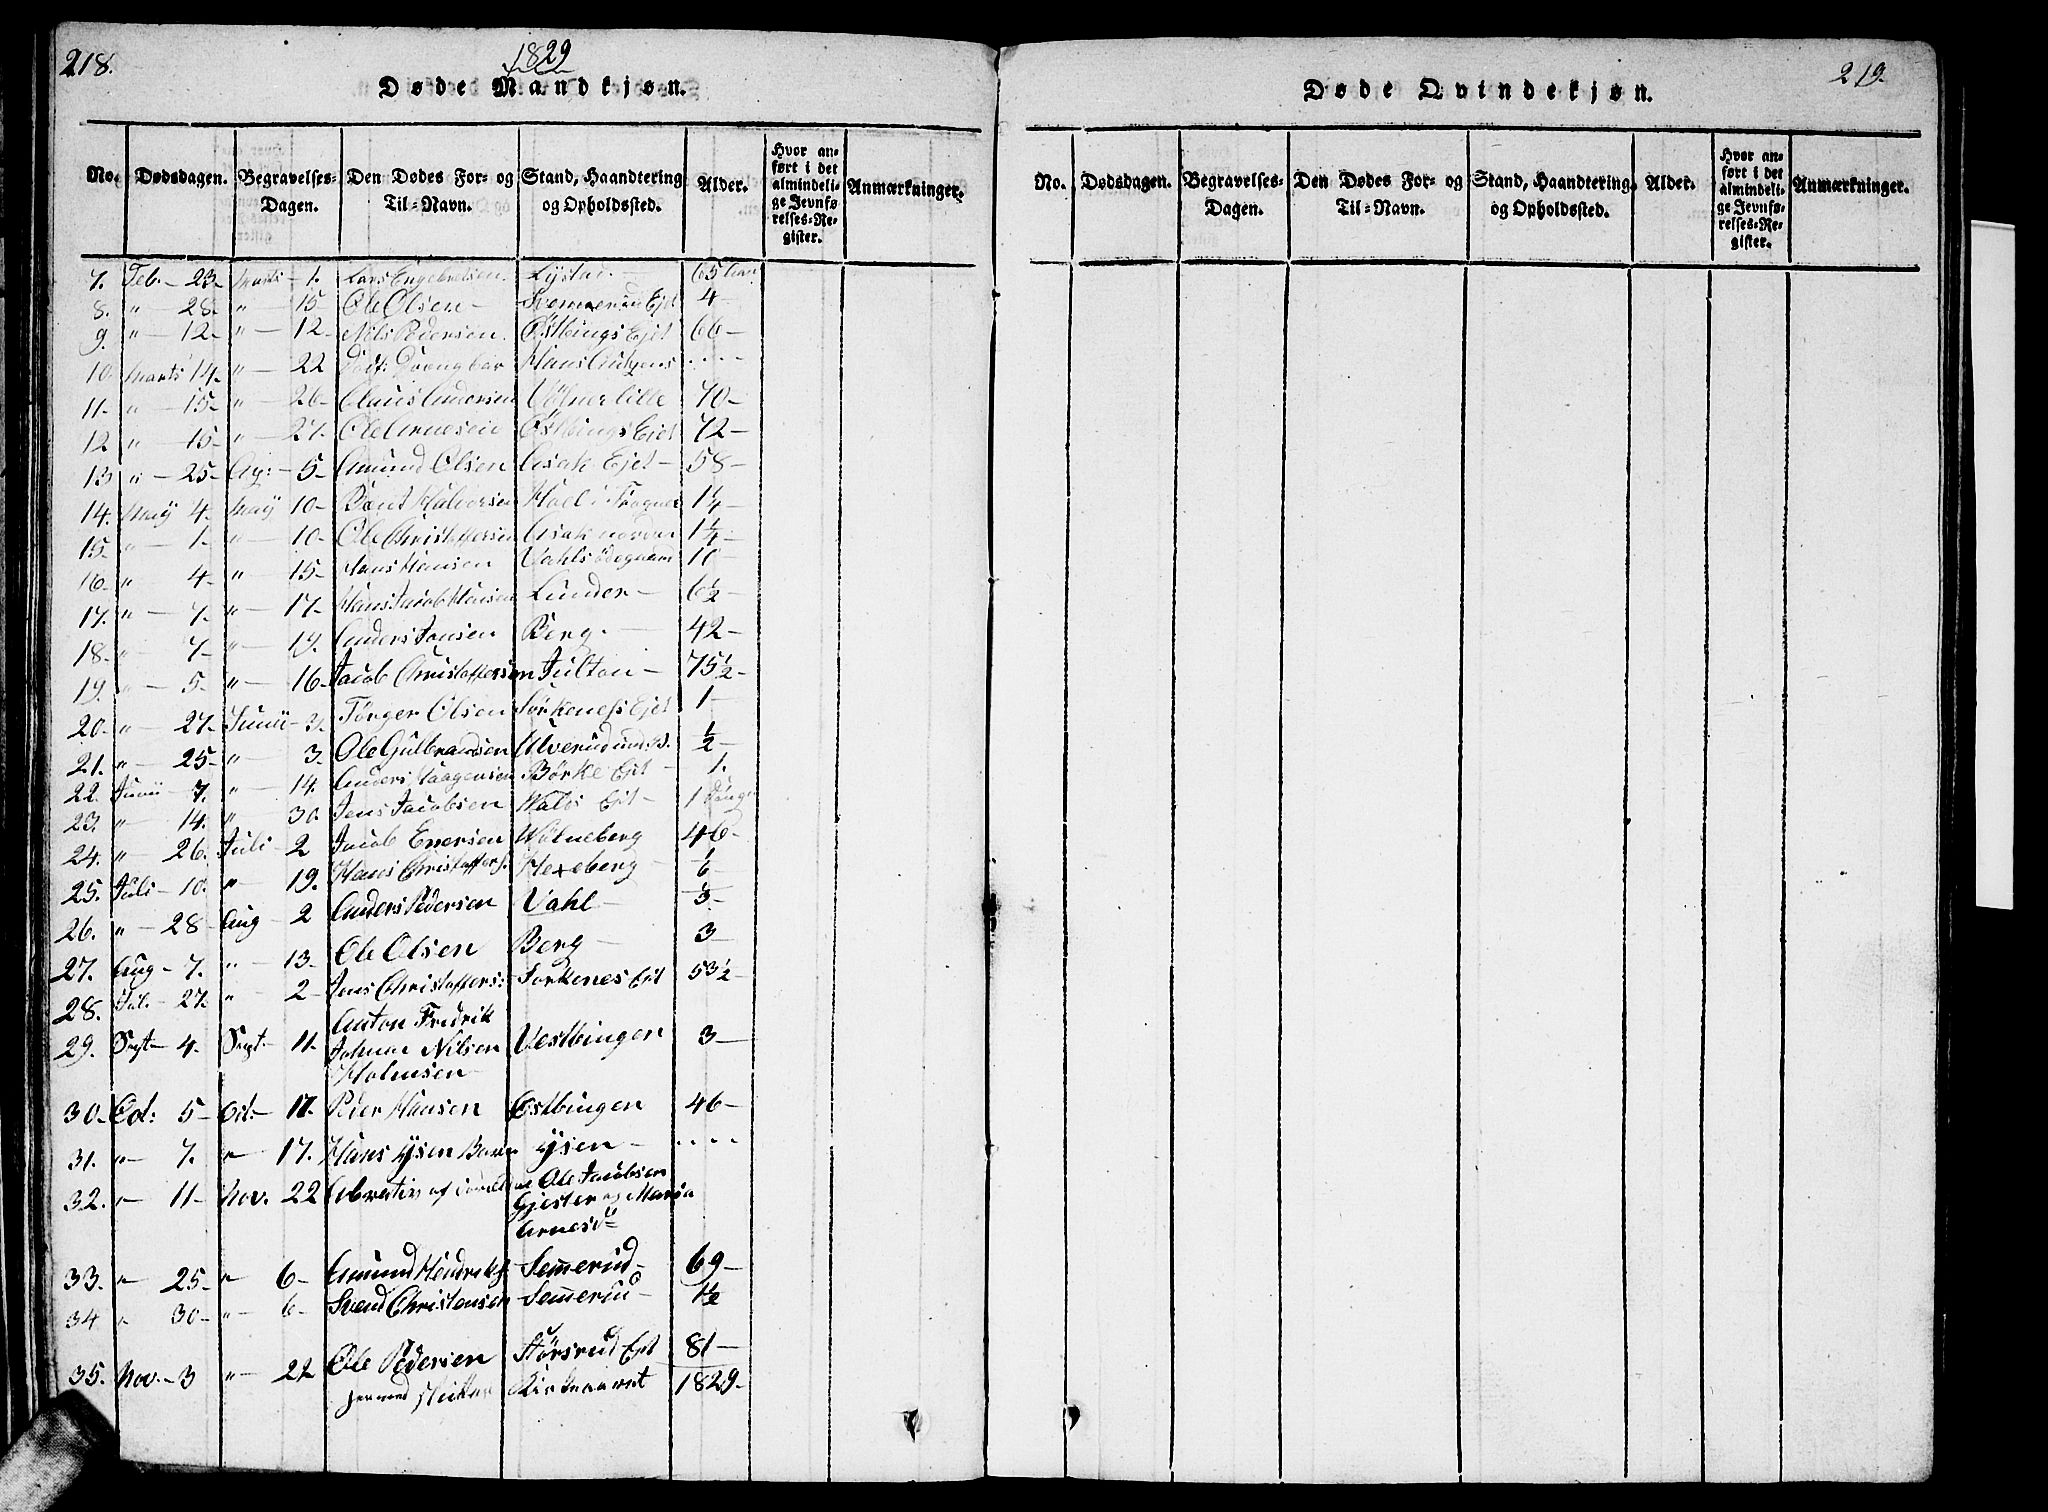 218.
1829
Døde Mandkjøn.
No. Dødsdagen. Begravelses-Dagen. Den Dødes For- og Til-Navn. Stand, Haandtering og Opholdssted. Alder. Hvor anført i det almindelige Jevnførelses-Register. Anmærkninger.
7. Feb. - 23. Marts - 1. Lars Engebretsen. Lystad. 65
8. " - 28. " - 15 Ole Olsen - Svemmerud Ejet 4 -
9. " - 12 - " - 12. Nils Pedersen. Östbings Ejet 66 -
10. Marts 14. " - 22 Hans ....
11. " - 15 - " - 26 - Claus Andersen lille 70 -
12 " - 15 - " - 27. Ole Arnesen Östbings Ejet 72 -
13 " - 25 - Ap: - 5 - Amund Olsen Asak Ejet - 58 -
14. May 4. May 10 - Bent Halvorsen Hoel i Frogner 1¼ -
15. " - 1. " - 10 - Ole Christoffersen Asak nordre 1¼ -
16. " 4 - " - 15 - Hans Hansen Vahls ödegaard 10
17. " - 7. " - 17 - Hans Jacob Hansen Lunder - 6½ -
18. " - 7 - " - 19. Anders Jonsen Berg. 42 -
19. " - 5. " - 16 - Jacob Christoffersen Julton - 75½ -
20. " - 27. Junii - 3. Törger Olsen Sörkeness Ejet 1 -
21. " - 25 - " - 3. Ole Gulbrandsen Ulverud ½ -
22. Junii - 7. " - 14. Anders Haagensen Börke Ejet - 1.
23. " - 14. " - 30. Jens Jacobsen Vals Ejet - 1
24. " - 26. Juli - 2 Jacob Enersen Wölneberg 46 -
25. Juli - 10. " - 19. Hans Christoffers. Hexeberg - 1/6 -
26. " - 28 Aug - 2 Anders Pedersen Vahl - 1/3 -
27. Aug - 7. " - 13 - Ole Olsen Berg - 3 -
28. Jul. - 27. " - 2 - Jens Christoffers: Sorkenes Ejet 53½ -
29. Sept - 4. Sept. - 11. Anton Fredrik
Johan Nilsen Vestbingen 3 -
Holmsen
30 - Oct: 5 - Oct: - 17. Peder Hansen Ostbingen 46 -
31. " - 7. " - 17. Hans Ysen Barn Ysen - ....
32. " - 11 - Nov. 22 af Ole Jacobsen
Gjester og Maria
Arnesd
33. " - 25 - " 6 - Amund Hendriks. Semmerud - 69 -
34 " 30 - " - 6 - Svend Christensen Semmerud - 1½
35. Nov. - 3 " - 22 Ole Pedersen Störsrud Ejet 81 -
Kirkeaaret 1829 -
219.
Døde Qvindekjøn.
No. Dødsdagen. Begravelses-Dagen. Den Dødes For- og Til-Navn. Stand, Haandtering og Opholdssted. Alder. Hvor anført i det almindelige Jevnførelses-Register. Anmærkninger.